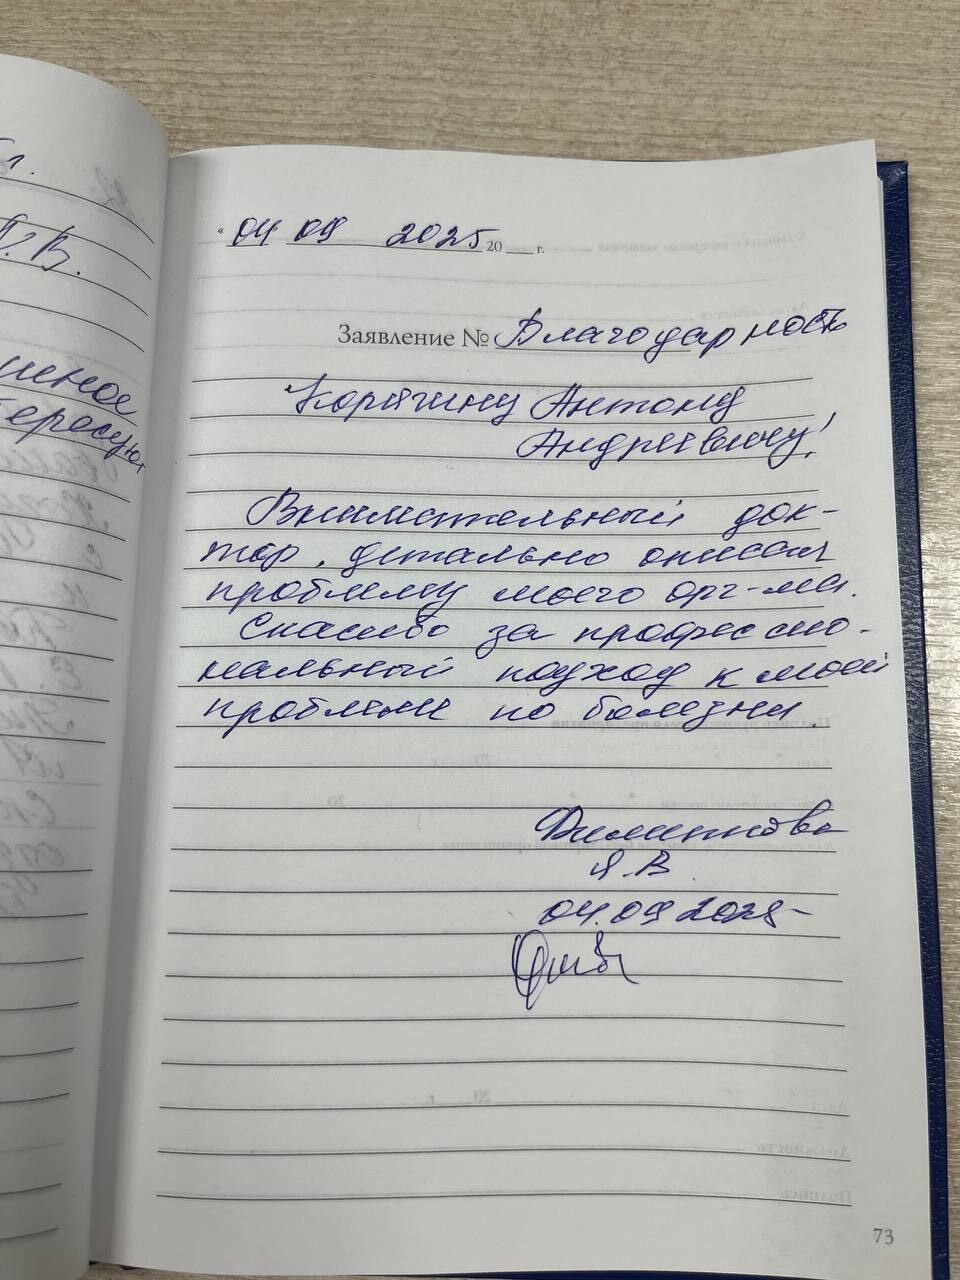 « 04 09 2025 20 г.
Заявление № Благодарность
Корячину Антону
Андреевичу!
Внимательный док-
тор, детально описал
проблему моего орг-ма.
Спасибо за профессио-
нальный подход к моей
проблеме по болезни.
Я.В.
04.09 2025
73